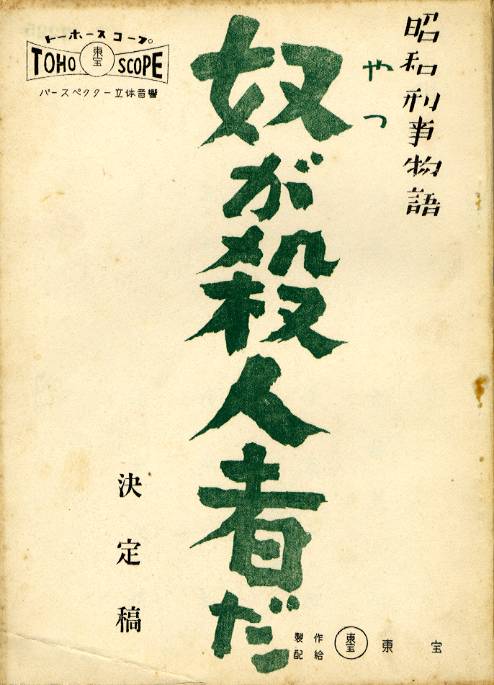 昭和刑事物語
やつ
奴が殺人者だ
トーホースコープ
東宝
TOHO SCOPE
パースペクター立体音響
決定稿
製作
配給
東宝
東宝